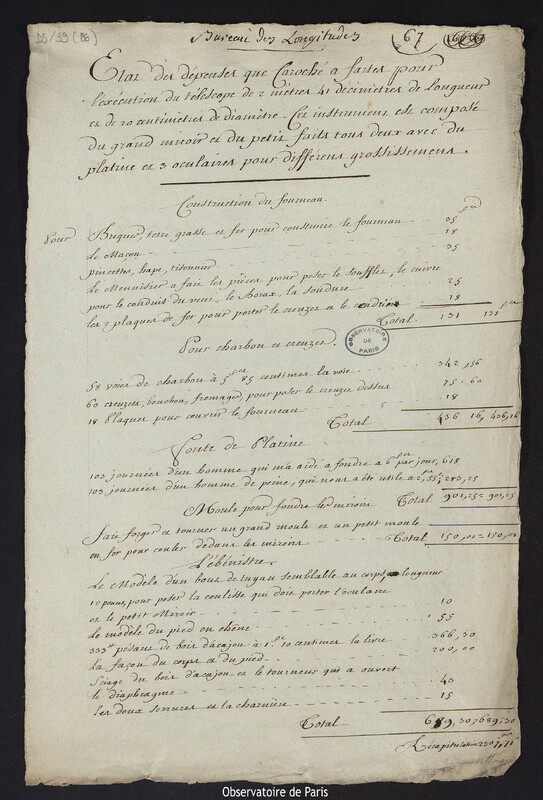 D5/39 (86)
Bureau des Longitudes
67
Etat des dépenses que Caroché a faites pour
l'exécution du télescope de 2 mètres 41 décimètres de longueur
et de 20 centimètres de diamètre. Cet instrument est composé
du grand miroir et du petit faits tous deux avec du
platine et 3 oculaires pour différens grossissemens.
Construction du fourneau.
Pour Briques, terre grasse et fer pour construire le fourneau 35
Le Maçon 18
pincettes, hape, tisonnier 35
Le Menuisier a fait les pièces pour poser le soufflet, le cuivre
pour le conduit du vent, le Borax, la soudure 25
les 2 plaques de fer pour porter le creuzet et le cendrier 18
Total. 131 131
OBSERVATOIRE DE PARIS
Pour charbon et creuzet.
58 voies de charbon à 5 85 centimes la voie 342,56
60 creuzets, bouchon, fromages, pour poser le creuzet dessus 75.60
18 Plaques pour couvrir le fourneau 18
Total 436 16, 436,16
Fonte de Platine
103 journées d'un homme qui m'a aidé à fondre à 6 par jour, 618
103 journées d'un homme de peine, qui nous a été utile à 2, 55 283,25
Moule pour fondre le miroir Total 901,25 = 901,25
Fait forger et tourner un grand moule et un petit moule
en fer pour couler dedans les miroirs Total 150,00 = 150,00
L'ébéniste.
Le Modèle d'un bout de tuyau semblable au corps longueur
10 pouces, pour poser la coulisse qui doit porter l'oculaire
et le petit Miroir 10
le modèle du pied en chêne 55
333 pesant de bois d'acajou à 1 10 centimes la livre 366,30
la façon du corps et du pied 200,00
Sciage du bois d'acajou et le tourneur qui a ouvert
le diaphragme 43
les deux serrures et la charnière 15
Total 689,30, 689,30
Récapitulation 2307,71
Observatoire de Paris